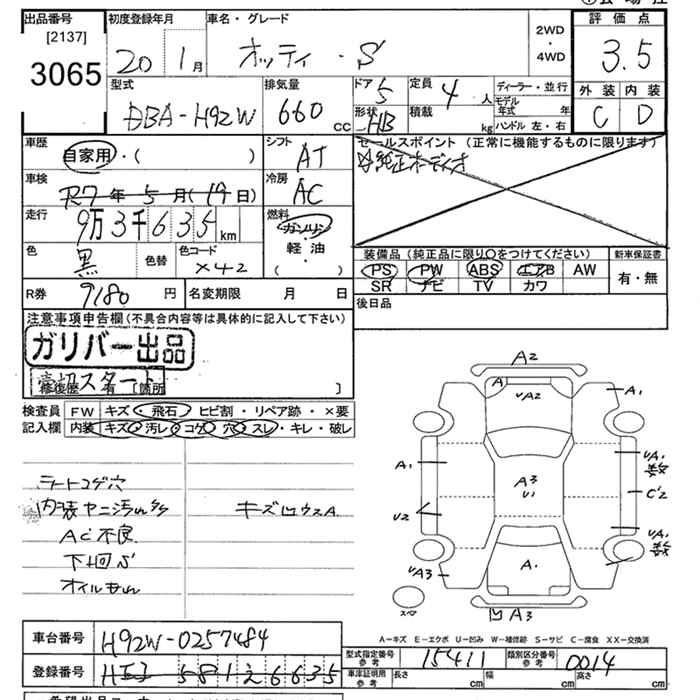 出品番号
[2137]
3065
初度登録年月
20 1月
車名・グレード
オッティ・S
2WD
・
4WD
評価点
3.5
外装 内装
C D
型式
DBA-H92W
排気量
660 cc
ドア 5
形状 HB
定員 4 人
積載 kg
ディーラー・並行
モデル年式 年
ハンドル 左・右
車歴
自家用・( )
シフト
AT
セールスポイント(正常に機能するものに限ります)
純正オーディオ
車検
R7年5月(19日)
冷房
AC
走行
9万3千635km
燃料
ガソリン
・
軽油
・
( )
色
黒
色替
色コード
X42
装備品(純正品に限り○をつけてください)
PS PW ABS エアB AW
SR ナビ TV カワ
新車保証書
有・無
R券 9180円
名変期限 月 日
後日品
注意事項申告欄(不具合内容等は具体的に記入して下さい)
ガリバー出品
スタート
修復歴 有 [箇所 ]
検査員記入欄
FW キズ・飛石・ヒビ割・リペア跡・×要
内装 キズ・汚レ・コゲ・穴・スレ・キレ・破レ
シートコゲ穴
内装ヤニ汚れ多
AC不良
下回S
オイルもれ
キズ凹ウスA
A2
A UA2
A1
A1
UA1
数
A3
U1
C2
U2
UA1
数
UA3
A1
スペア
凹A3
A-キズ E-エクボ U-凹み W-補修跡 S-サビ C-腐食 XX-交換済
車台番号
H92W-0257484
登録番号
5812 6635
型式指定番号
参考
15411
類別区分番号
参考
0014
車庫証明用
参考
長さ cm
幅 cm
高さ cm